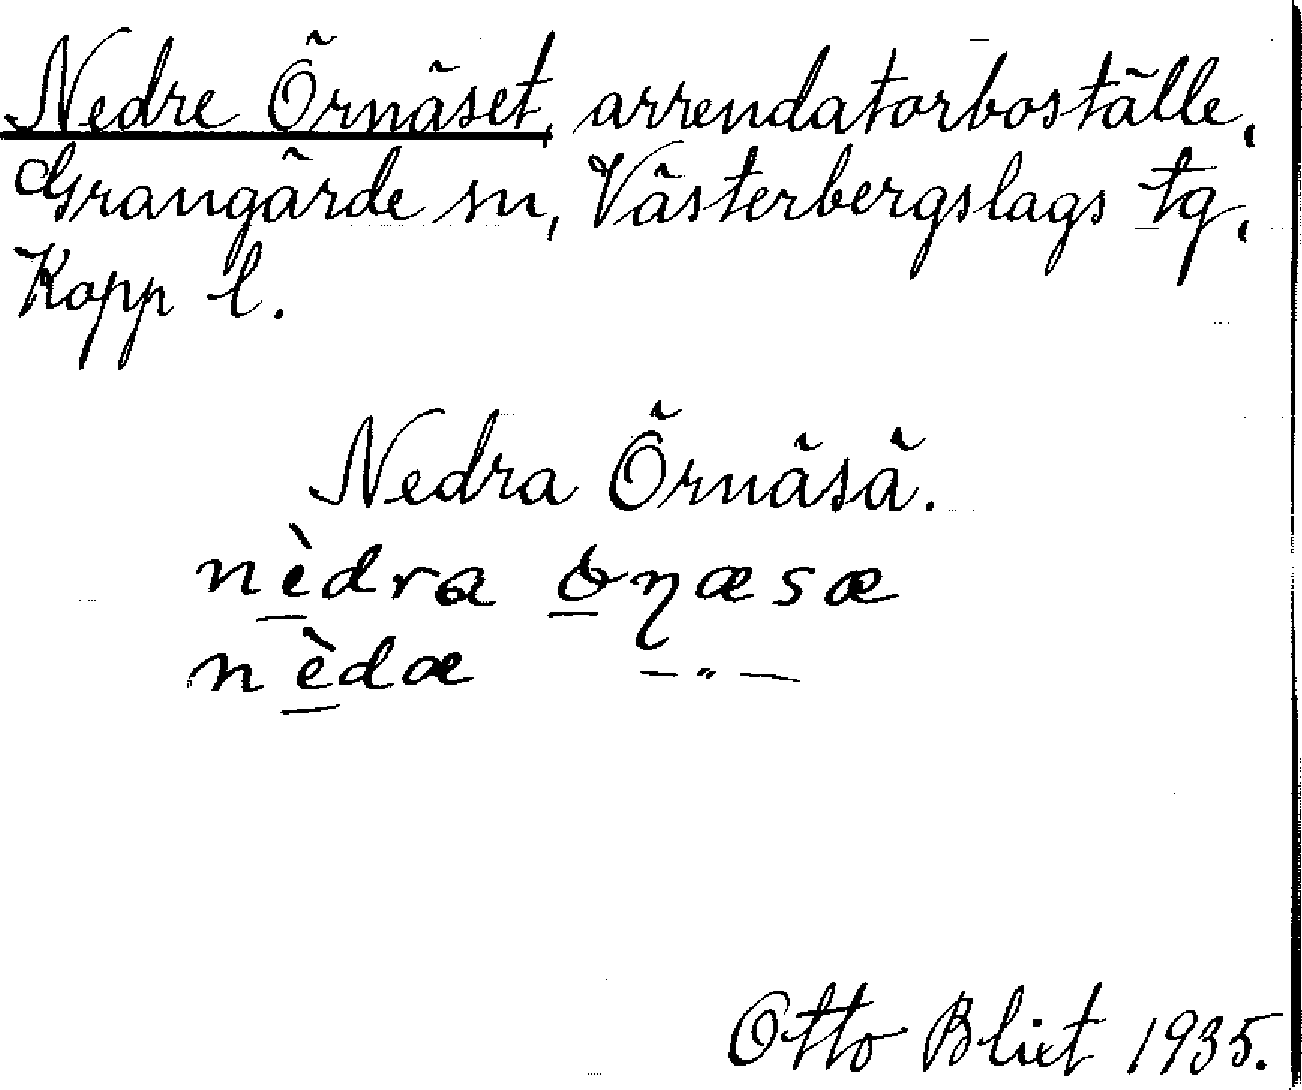 Nedre Örnäset, arrendatorboställe,
Grangärde sn, Västerbergslags tg,
Kopp l.
Nedra Örnäsä.
nèdra ȯɳæsæ
nèdæ —〃—
Otto Blixt 1935.